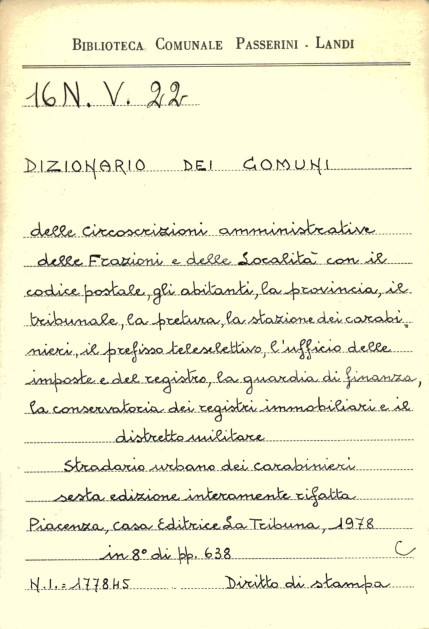 BIBLIOTECA COMUNALE PASSERINI - LANDI
16 N. V. 22
DIZIONARIO DEI COMUNI
delle circoscrizioni amministrative
delle Frazioni e delle Località con il
codice postale, gli abitanti, la provincia, il
tribunale, la pretura, la stazione dei carabi_
nieri, il prefisso teleselettivo, l'ufficio delle
imposte e del registro, la guardia di finanza,
la conservatoria dei registri immobiliari e il
distretto militare
Stradario urbano dei carabinieri
sesta edizione interamente rifatta
Piacenza, Casa Editrice La Tribuna, 1978
in 8° di pp. 638
C
N.I. = 177845 Diritto di stampa